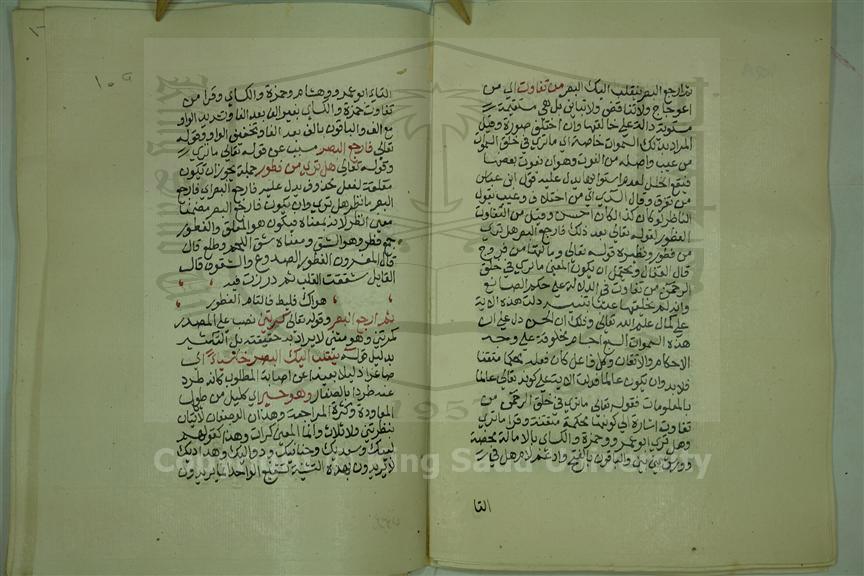 ثم ارجع البصر ينقلب اليك البصر من تفاوت اي من
اعوجاج ولا تناقض ولا تباين بل هي مستقيمة
مستوية دالة على خالقها وان اختلفت صورة وقيل
المراد بذلك السموات خاصة اي ما ترى في خلق السموات
من عيب واصله من الفوت وهو ان يفوت بعضها
فيقع الخلل لعدم استوائها يدل عليه قول ابن عباس
من تفرق وقال السدي اي من اختلاف وعيب يقول
الناظر لو كان كذا لكان احسن وقيل من التفاوت
الفطور لقوله تعالى بعد ذلك فارجع البصر هل ترى
من فطور ونظيره قوله تعالى وما لها من فروج
قال القفال ويحتمل ان يكون المعنى ما ترى في خلق
الرحمن من تفاوت في الدلالة على حكم الصانع
وانه لم يخلقها عبثا تنبيه دلت هذه الاية
على كمال علم الله تعالى وذلك ان الحس دل على ان
هذه السموات السبع اجسام مخلوقة على وجه
الاحكام والاتقان وكل فاعل كان فعله محكما متقنا
فلا بد وان يكون عالما فدلت الاية على كونه تعالى عالما
بالمعلومات فقوله تعالى ما ترى في خلق الرحمن من
تفاوت اشارة الى كونها محكمة متقنة وقرا ما ترى
وهل ترى ابو عمرو وحمزة والكسائي بالامالة محضة
وورش بين بين والباقون بالفتح وادغم لام هل في
التا
التاء ابو عمرو وهشام وحمزة والكسائي وقرا من
تفاوت حمزة والكسائي بغير الف بعد الفا وتشديد الواو
مع الف والباقون بالف بعد الفا وتخفيف الواو وقوله
تعالى فارجع البصر مسبب عن قوله تعالى ما ترى
وقوله تعالى هل ترى من فطور جملة يجوز ان تكون
متعلقة لفعل محذوف يدل عليه فارجع البصر اي فارجع
البصر فانظر هل ترى وان يكون فارجع البصر مضمنا
معنى انظر لانه بمعناه فيكون هو المتعلق والفطور
جمع فطر وهو الشق ومعناه شق اللحم وطلع قال
قال المفسرون الفطور الصدوع والشقوق قال
القايل شققت القلب ثم ذررت فيه
هواك فليط فالتام الفطور
ثم ارجع البصر وقوله تعالى كرتين نصب على المصدر
كمرتين وهو مثنى لا يراد به حقيقته بل التكثير
بدليل قوله ينقلب اليك البصر خاسئا اي
صاغرا ذليلا بعيدا عن اصابة المطلوب كانه طرد
عنه طردا بالصغار وهو حسير اي كليل من طول
المعاودة وكثرة المراجعة وهذان الوصفان لا يتان
بنظرتين ولا ثلاث وانما المعنى كرات وهذا كقولهم
لبيك وسعديك وحنانيك ودواليك وهذاذيك
لا يريدون بهذه التثنية شفع الواحد انما يريدون
Cyber King Saud University
1957